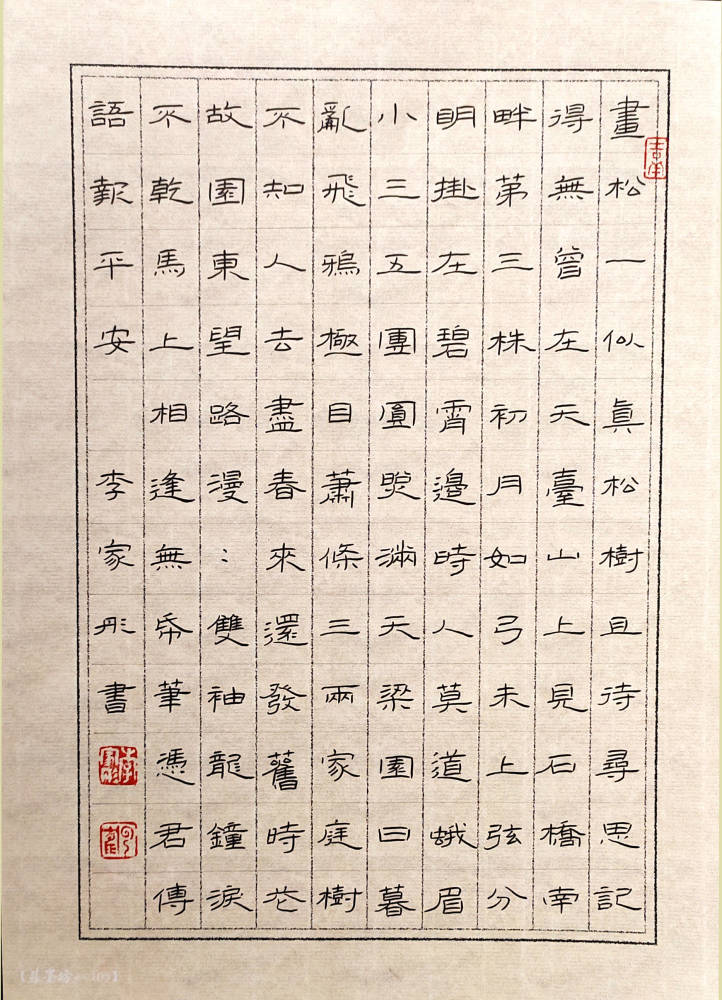 畫松一似眞松樹且待尋思記
得無曾在天臺山上見石橋南
畔第三株初月如弓未上弦分
明掛在碧霄邊時人莫道蛾眉
小三五團圓照滿天梁園日暮
亂飛鴉極目蕭條三兩家庭樹
不知人去盡春來還發舊時花
故園東望路漫：雙袖龍鐘淚
不乾馬上相逢無帋筆憑君傳
語報平安 李家彤書
李家彤